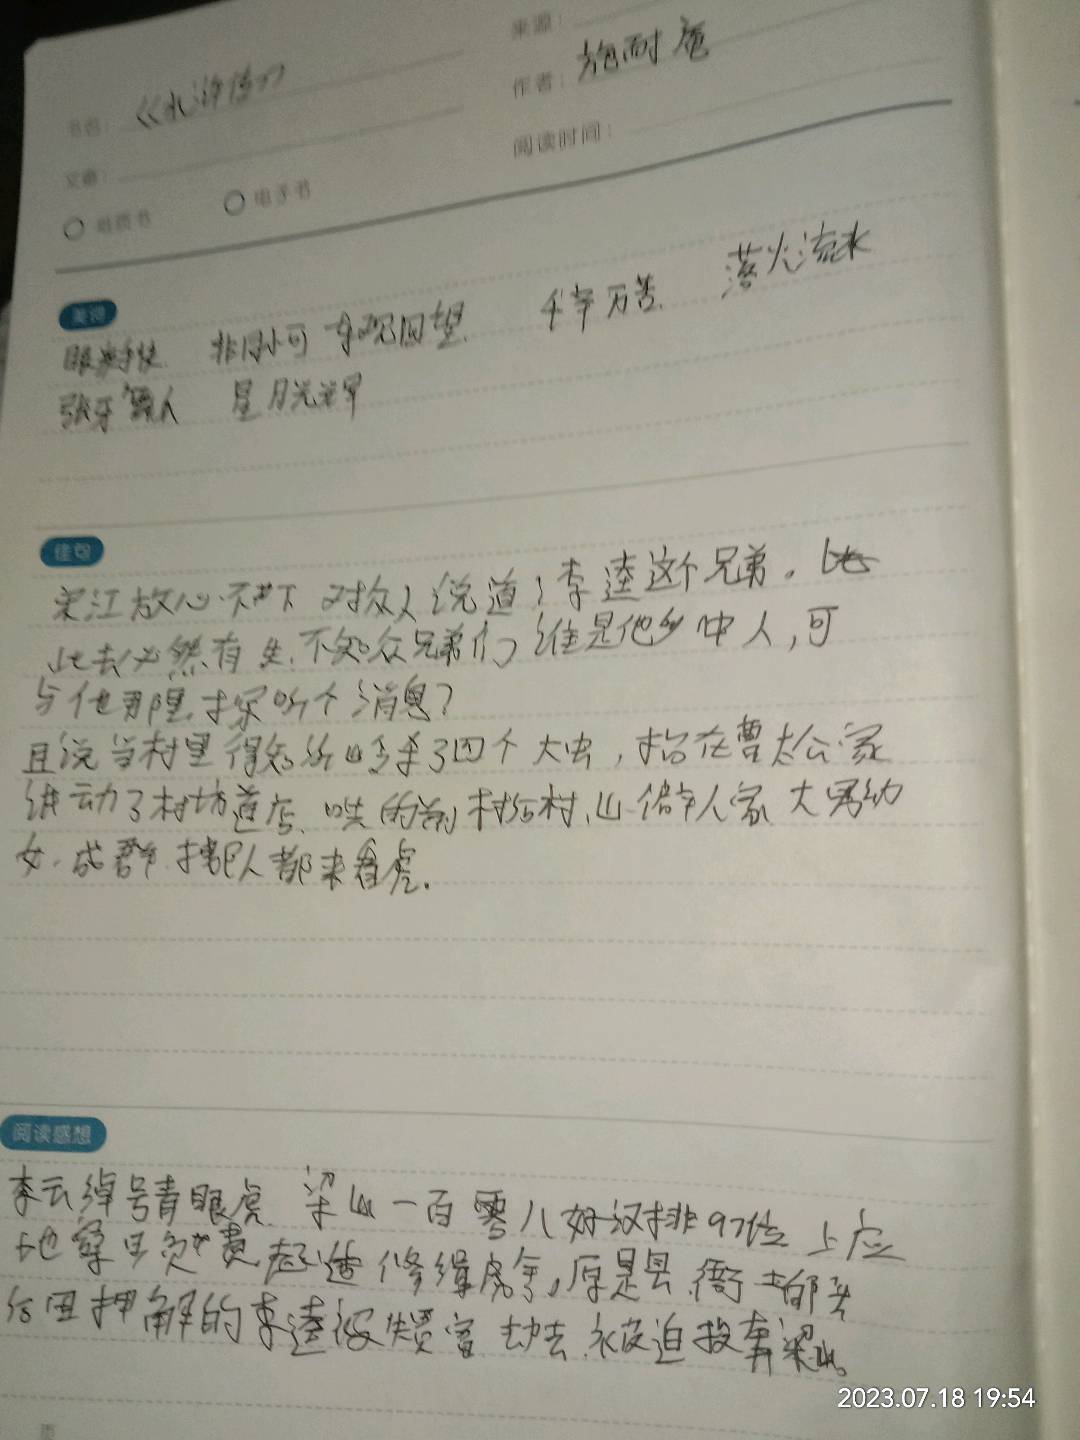 来源：
书名：《水浒传》
作者：施耐庵
文章：
阅读时间：
纸质书 电子书
美词
眼尖手快 非同小可 东观西望 千辛万苦 落火流水
张牙 人 星月光辉
佳句
宋江放心不下 对众人说道：李逵这个兄弟。此
此去必然有失.不知众兄弟们 谁是他乡中人,可
与他那里探听个消息?
且说当村里得知 杀了四个大虫,抬在曹太公家
讲动了村坊道店.哄的前村后村,山僻人家大男幼
女.成群 都来看虎.
阅读感想
李云绰号青眼虎 梁山一百零八好汉排97位 上应
地 星 负责起造修缉房舍,原是县衙 都头
因押解的李逵被 富劫去 被迫投奔梁山。
页
2023.07.18 19:54